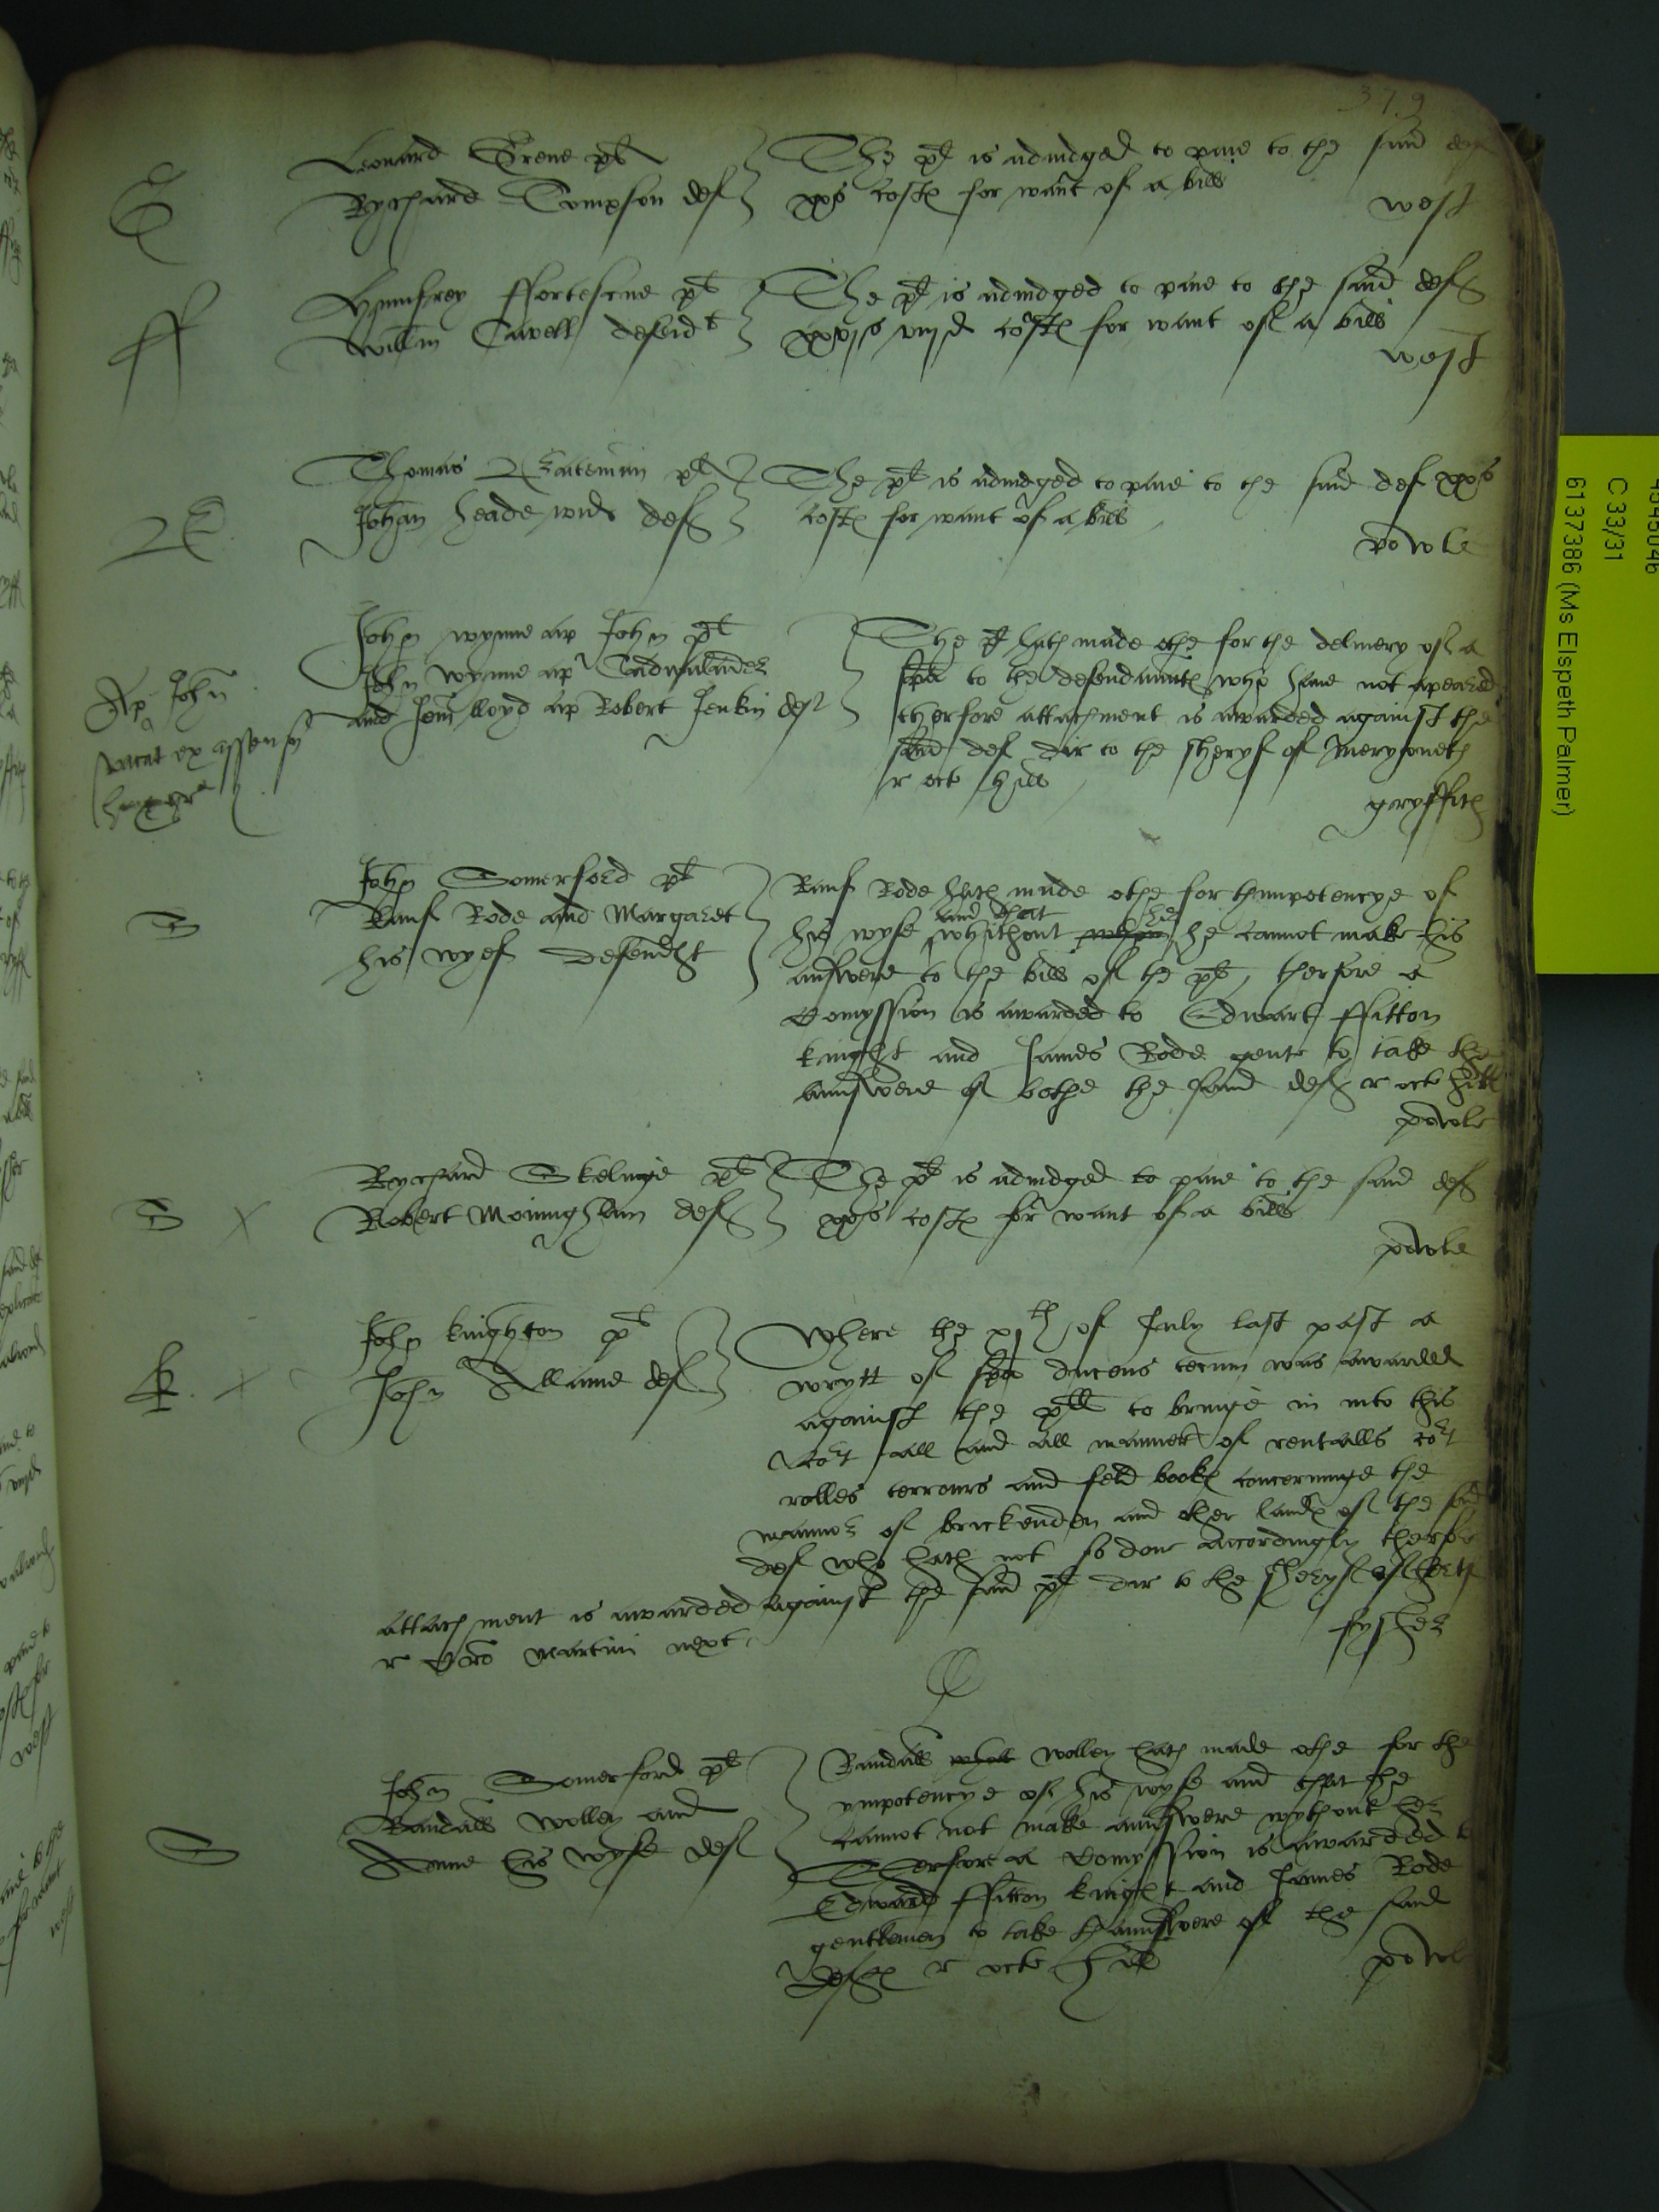 379
G
Leonard Grene plt
Rychard Tompson def
The pl is adiudged to paie to the said def
xxs costs for want of a bill
west
ff
Humfrey ffortescue plt
Willm Cavell defendt
The pl is adiudged to paie to the said def
xxvjs viijd costs for want of a bill
west
Thomas Bateman plt
Johan Heade wid def
The pl is adiudged to paie to the said def xxs
costs for want of a bill
powle
Ap John
vacat ex assensu
John wynne ap John plt
John wynne ap Cadwalader
and Jem lloyd ap Robert Jenkin def
The pl hath made othe for the delivery of a
spa to the defendauntes who have not apeared
therfore attachment is awarded against the
said def dir to the sheryf of Meryoneth
r oct hill
gryffith
S
John Somerford plt
Rauf Rode and Margaret
his wyef defendt
Rauf Rode hath made othe for thimpotencye of
his wyfe and that whithout whom her he cannot make his
answere to the bill of the pl, therfore a
Comyssion is awarded to Edward ffitton
knight and James Rode gent to take the
aunswere of bothe the said def r oct hill
powle
S x
Rychard Skelinge plt
Robert Moningham def
The pl is adiudged to paie to the said def
xxs costs for want of a bill
powle
k. x
John knighton plt
John Allame def
Where the xjth of July last past a
wrytt of spa ducens tecum was awarded
against the pltt to bringe in into this
Cort all and all manner of rentalls cort
rolles terrours and feld books concerninge the
mannor of brickendon and other lands of the said
def who hath not so done Accordingly therfore
attachment is awarded against the said pl dir to the sheryf of hertf
r Cro Martini next.
fysher
S
John Somerford plt
Randall wolley and
Anne his wyfe def
Randall wolley hath made othe for the
ympotencye of his wyfe and that he
cannot not make aunswere wythout her
Therfore a Comyssion is awarded to
Edward ffitton knight and James Rode
gentlemen to take thaunswere of the said
defts r octo hill
powl
C 33/31
6137386 (Ms Elspeth Palmer)